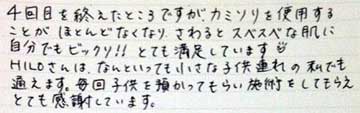 4回目を終えたところですが、カミソリを使用する
ことがほとんどなくなり、さわるとスベスベな肌に
自分でもビックリ!! とても満足しています☺
HILOさんは、なんといっても小さな子供連れの私でも
通えます。毎回子供を預かってもらい施術をしてもらえ
とても感謝しています。